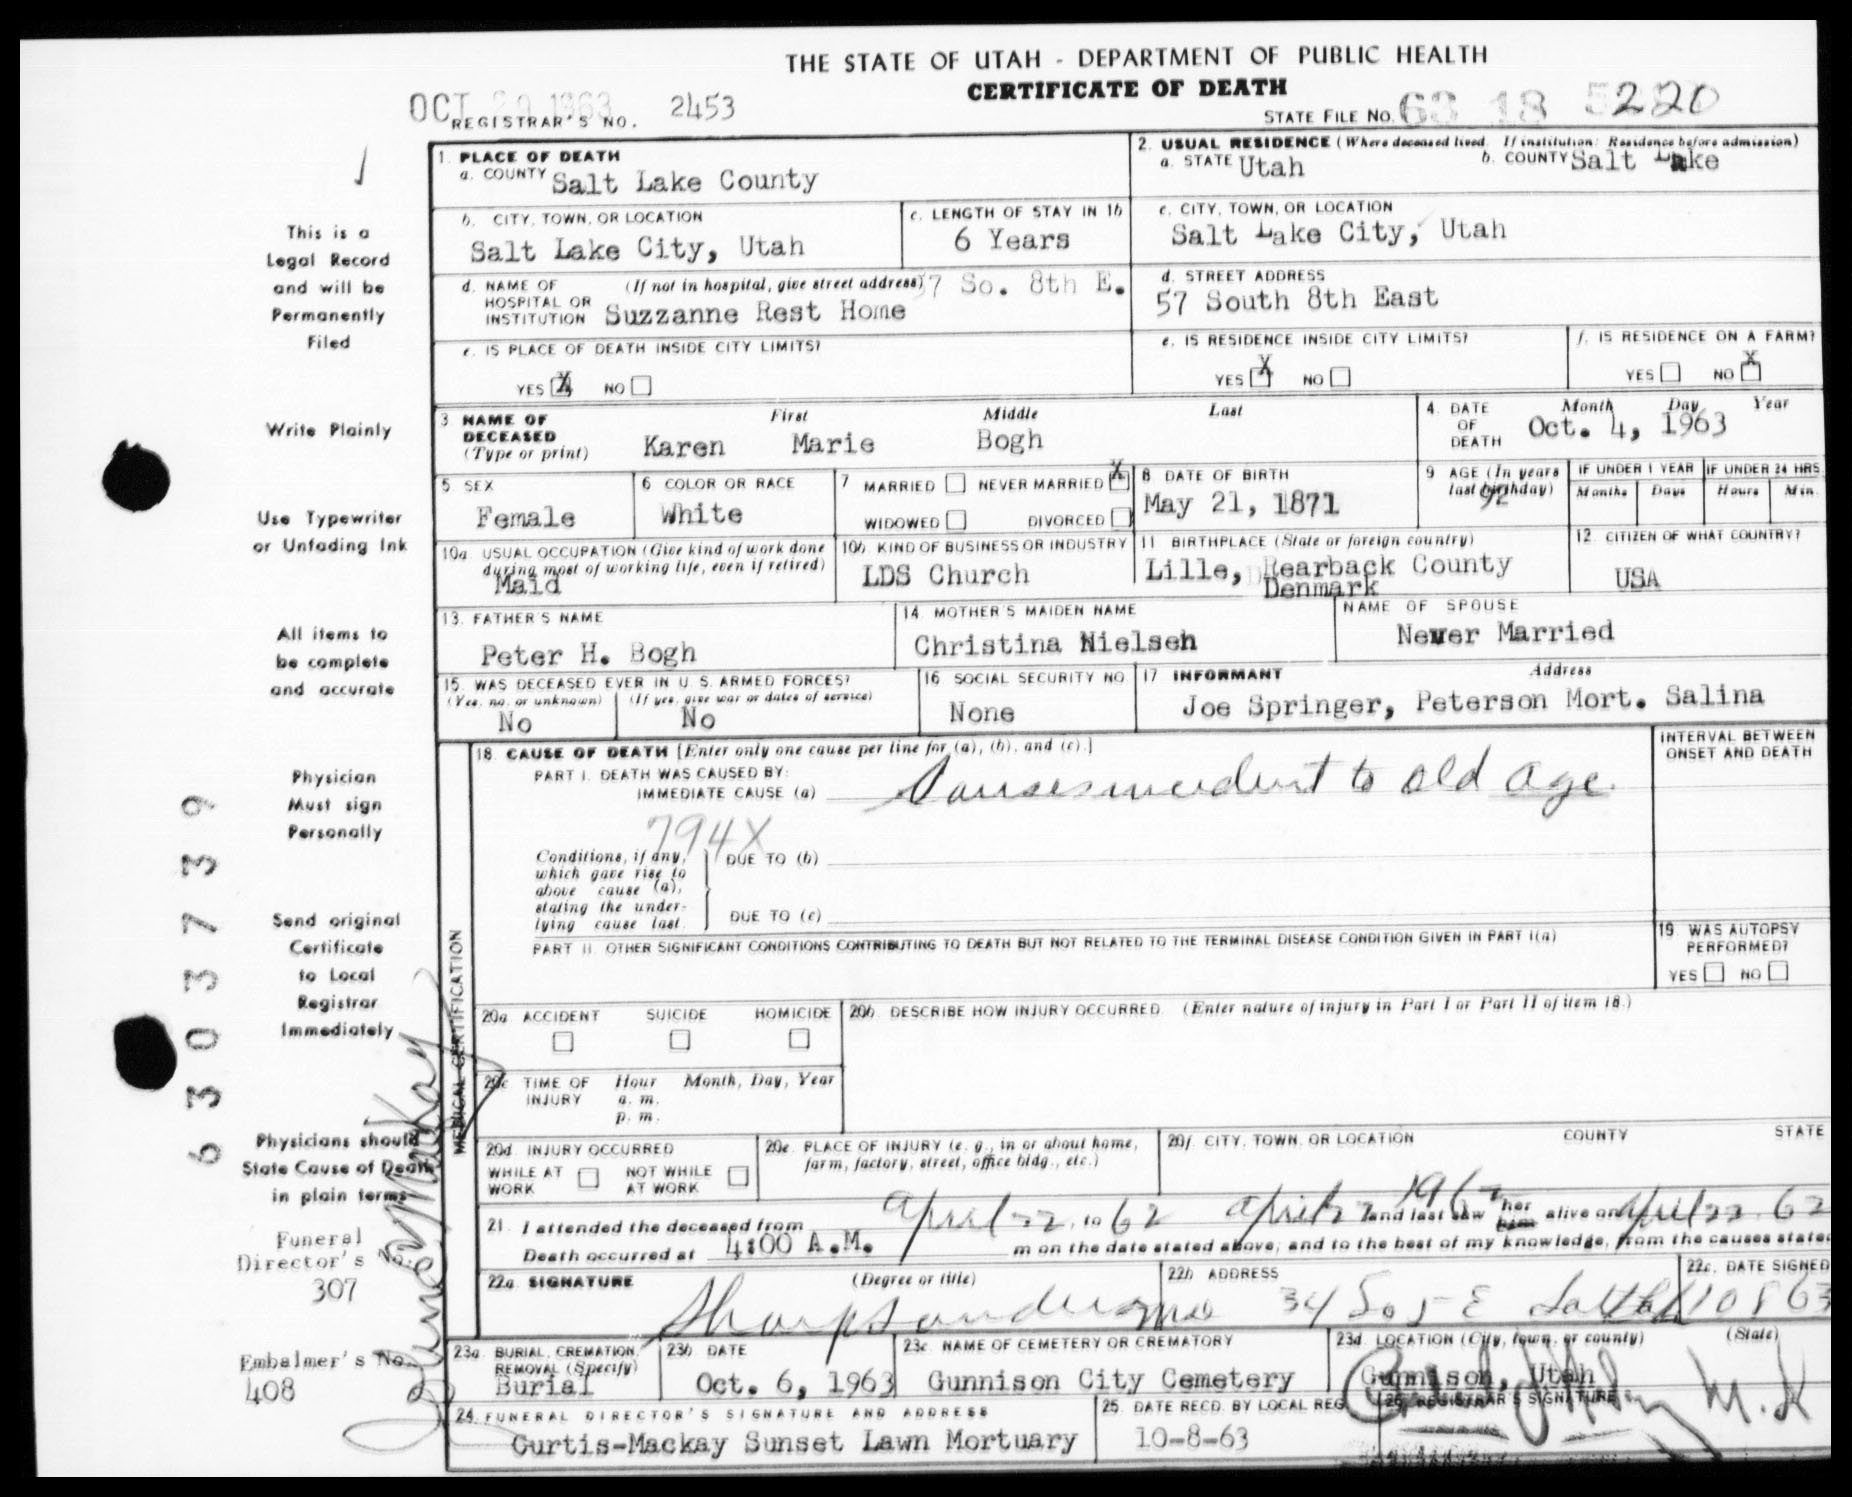 THE STATE OF UTAH - DEPARTMENT OF PUBLIC HEALTH
CERTIFICATE OF DEATH
OCT 29 1963
REGISTRAR'S NO. 2453
STATE FILE NO. 63 18 5220
1. PLACE OF DEATH
a. COUNTY Salt Lake County
2. USUAL RESIDENCE (Where deceased lived. If institution: Residence before admission)
a. STATE Utah b. COUNTY Salt Lake
b. CITY, TOWN, OR LOCATION
Salt Lake City, Utah
c. LENGTH OF STAY IN 1b
6 Years
c. CITY, TOWN, OR LOCATION
Salt Lake City, Utah
d. NAME OF HOSPITAL OR INSTITUTION (If not in hospital, give street address) 57 So. 8th E.
Suzzanne Rest Home
d. STREET ADDRESS
57 South 8th East
e. IS PLACE OF DEATH INSIDE CITY LIMITS?
YES X NO
e. IS RESIDENCE INSIDE CITY LIMITS?
YES X NO
f. IS RESIDENCE ON A FARM?
YES NO X
3 NAME OF DECEASED (Type or print)
First Middle Last
Karen Marie Bogh
4. DATE OF DEATH
Month Day Year
Oct. 4, 1963
5 SEX
Female
6 COLOR OR RACE
White
7 MARRIED NEVER MARRIED X
WIDOWED DIVORCED
8 DATE OF BIRTH
May 21, 1871
9 AGE (In years last birthday)
92
IF UNDER 1 YEAR
Months Days
IF UNDER 24 HRS.
Hours Min.
10a. USUAL OCCUPATION (Give kind of work done during most of working life, even if retired)
Maid
10b. KIND OF BUSINESS OR INDUSTRY
LDS Church
11 BIRTHPLACE (State or foreign country)
Lille, Rearback County
Denmark
12. CITIZEN OF WHAT COUNTRY?
USA
13. FATHER'S NAME
Peter H. Bogh
14 MOTHER'S MAIDEN NAME
Christina Nielsen
NAME OF SPOUSE
Never Married
15. WAS DECEASED EVER IN U. S. ARMED FORCES?
(Yes, no, or unknown) (If yes, give war or dates of service)
No No
16 SOCIAL SECURITY NO
None
17 INFORMANT Address
Joe Springer, Peterson Mort. Salina
18. CAUSE OF DEATH [Enter only one cause per line for (a), (b), and (c).]
PART I. DEATH WAS CAUSED BY:
IMMEDIATE CAUSE (a) Causes incident to old age.
794X
Conditions, if any, which gave rise to above cause (a), stating the underlying cause last.
DUE TO (b)
DUE TO (c)
INTERVAL BETWEEN ONSET AND DEATH
PART II. OTHER SIGNIFICANT CONDITIONS CONTRIBUTING TO DEATH BUT NOT RELATED TO THE TERMINAL DISEASE CONDITION GIVEN IN PART I(a)
19 WAS AUTOPSY PERFORMED?
YES NO
MEDICAL CERTIFICATION
20a ACCIDENT SUICIDE HOMICIDE
20b. DESCRIBE HOW INJURY OCCURRED. (Enter nature of injury in Part I or Part II of item 18.)
20c TIME OF INJURY Hour Month, Day, Year
a. m.
p. m.
20d. INJURY OCCURRED
WHILE AT WORK NOT WHILE AT WORK
20e. PLACE OF INJURY (e. g., in or about home, farm, factory, street, office bldg., etc.)
20f. CITY, TOWN, OR LOCATION COUNTY STATE
21. I attended the deceased from April 22, to 62 April 22 1962 and last saw her him alive on April 22 62
Death occurred at 4:00 A.M. m on the date stated above; and to the best of my knowledge, from the causes stated
22a. SIGNATURE (Degree or title)
22b ADDRESS
34 So 5 E
22c. DATE SIGNED
10 8 63
23a. BURIAL, CREMATION, REMOVAL (Specify)
Burial
23b DATE
Oct. 6, 1963
23c. NAME OF CEMETERY OR CREMATORY
Gunnison City Cemetery
23d. LOCATION (City, town, or county) (State)
Gunnison, Utah
24. FUNERAL DIRECTOR'S SIGNATURE AND ADDRESS
Curtis-Mackay Sunset Lawn Mortuary
25. DATE RECD. BY LOCAL REG.
10-8-63
26. REGISTRAR'S SIGNATURE
This is a
Legal Record
and will be
Permanently
Filed
Write Plainly
Use Typewriter
or Unfading Ink
All items to
be complete
and accurate
Physician
Must sign
Personally
Send original
Certificate
to Local
Registrar
Immediately
Physicians should
State Cause of Death
in plain terms
Funeral
Director's No.
307
Embalmer's No.
408
63037739